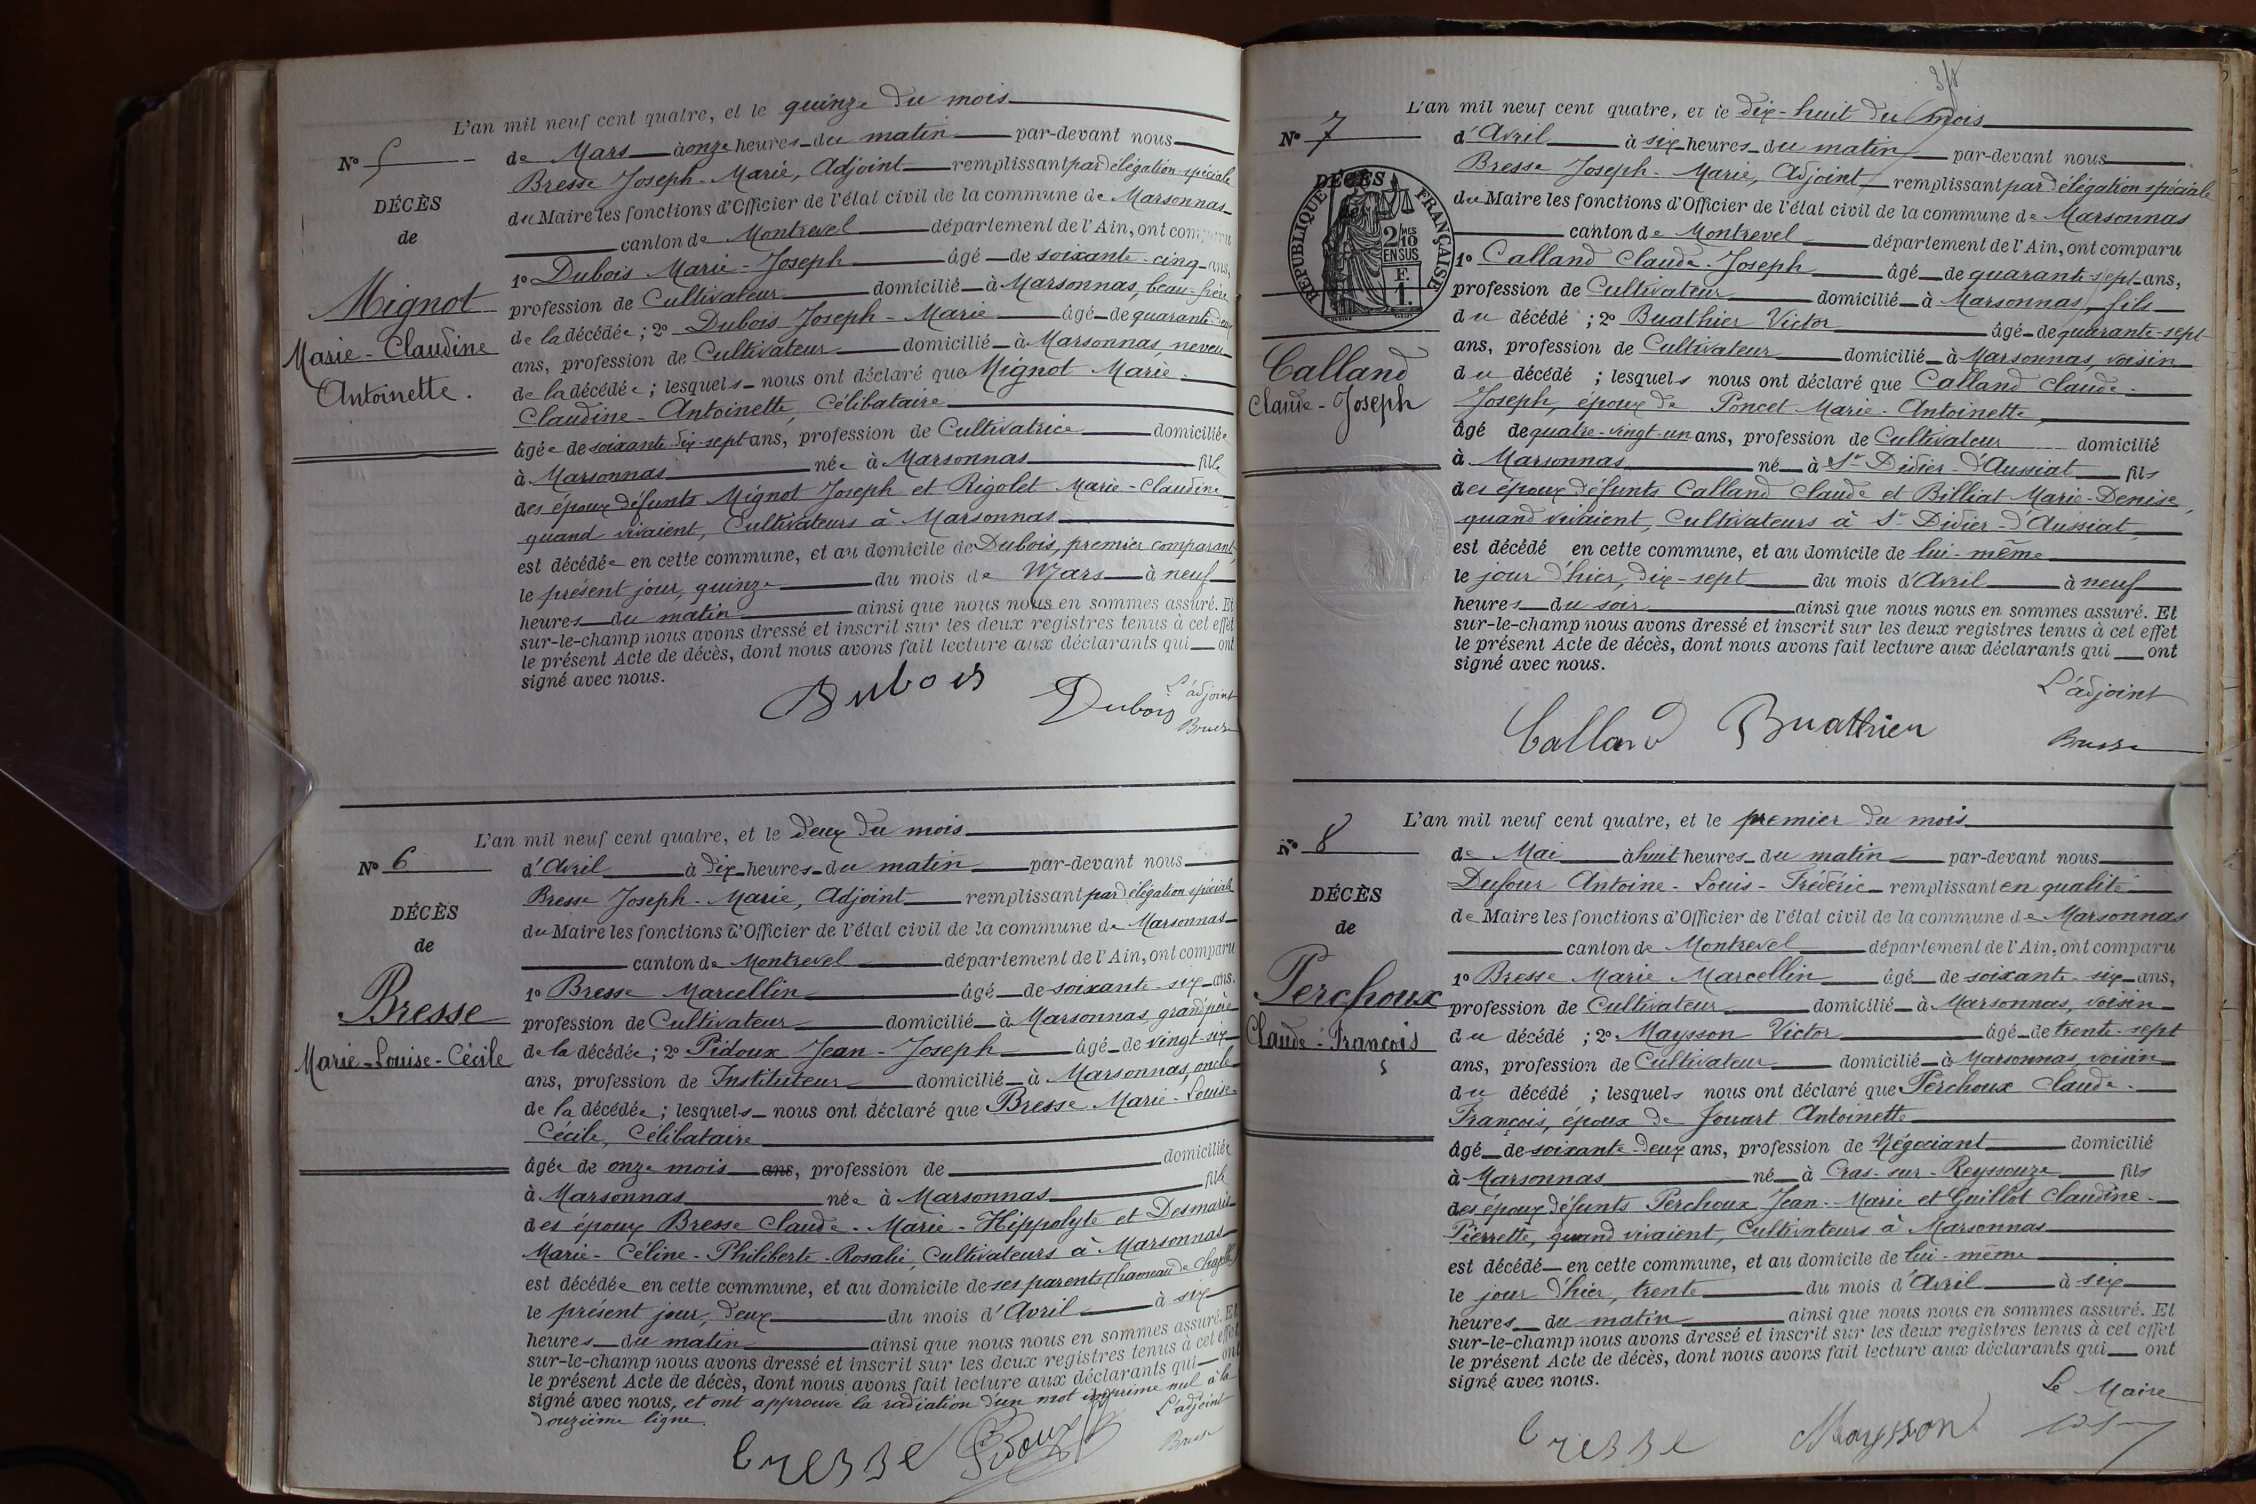 L'an mil neuf cent quatre, et le quinze du mois
N° 5
de Mars à onze heures du matin par-devant nous
Bresse Joseph-Marie, Adjoint remplissant par délégation spéciale
DÉCÈS
du Maire les fonctions d'Officier de l'état civil de la commune de Marsonnas
de
canton de Montrevel département de l'Ain, ont comparu
1° Dubois Marie-Joseph âgé de soixante-cinq ans,
Mignot
profession de Cultivateur domicilié à Marsonnas, beau-frère
de la décédée ; 2° Dubois Joseph-Marie âgé de quarante-deux
Marie-Claudine
ans, profession de Cultivateur domicilié à Marsonnas, neveu
Antoinette.
de la décédée ; lesquels nous ont déclaré que Mignot Marie-
Claudine-Antoinette, Célibataire
âgée de soixante-dix-sept ans, profession de Cultivatrice domiciliée
à Marsonnas née à Marsonnas fille
des époux défunts Mignot Joseph et Rigolet Marie-Claudine,
quand vivaient, Cultivateurs à Marsonnas
est décédée en cette commune, et au domicile de Dubois, premier comparant,
le présent jour, quinze du mois de Mars à neuf
heures du matin ainsi que nous nous en sommes assuré. Et
sur-le-champ nous avons dressé et inscrit sur les deux registres tenus à cet effet
le présent Acte de décès, dont nous avons fait lecture aux déclarants qui ont
signé avec nous.
L'adjoint
Dubois Dubois Bresse
L'an mil neuf cent quatre, et le deux du mois
N° 6
d'Avril à dix heures du matin par-devant nous
Bresse Joseph-Marie, Adjoint remplissant par délégation spéciale
DÉCÈS
du Maire les fonctions d'Officier de l'état civil de la commune de Marsonnas
de
canton de Montrevel département de l'Ain, ont comparu
1° Bresse Marcellin âgé de soixante-six ans,
Bresse
profession de Cultivateur domicilié à Marsonnas, grand'père
Marie-Louise-Cécile
de la décédée ; 2° Pidoux Jean-Joseph âgé de vingt-six
ans, profession de Instituteur domicilié à Marsonnas, oncle
de la décédée ; lesquels nous ont déclaré que Bresse Marie-Louise-
Cécile, Célibataire
âgée de onze mois ans, profession de domiciliée
à Marsonnas née à Marsonnas fille
des époux Bresse Claude-Marie-Hippolyte et Desmaris
Marie-Céline-Philiberte-Rosalie, Cultivateurs à Marsonnas
est décédée en cette commune, et au domicile de ses parents, hameau de
le présent jour, deux du mois d'Avril à six
heures du matin ainsi que nous nous en sommes assuré. Et
sur-le-champ nous avons dressé et inscrit sur les deux registres tenus à cet effet
le présent Acte de décès, dont nous avons fait lecture aux déclarants qui ont
signé avec nous, et ont approuvé la radiation d'un mot imprimé nul à la
douzième ligne.
L'adjoint
Bresse Pidoux Bresse
3/8
L'an mil neuf cent quatre, et le dix-huit du mois
N° 7
d'Avril à six heures du matin par-devant nous
Bresse Joseph-Marie, Adjoint remplissant par délégation spéciale
DÉCÈS
RÉPUBLIQUE FRANÇAISE
2/10 MES
EN SUS
F.
1.
du Maire les fonctions d'Officier de l'état civil de la commune de Marsonnas
canton de Montrevel département de l'Ain, ont comparu
1° Calland Claude-Joseph âgé de quarante-sept ans,
profession de Cultivateur domicilié à Marsonnas, fils
du décédé ; 2° Buathier Victor âgé de quarante-sept
Calland
ans, profession de Cultivateur domicilié à Marsonnas, voisin
Claude-Joseph
du décédé ; lesquels nous ont déclaré que Calland Claude-
Joseph, époux de Poncet Marie-Antoinette,
âgé de quatre-vingt-un ans, profession de Cultivateur domicilié
à Marsonnas né à St-Didier-d'Aussiat fils
des époux défunts Calland Claude et Billiat Marie-Denise,
quand vivaient, Cultivateurs à St-Didier-d'Aussiat,
est décédé en cette commune, et au domicile de lui-même
le jour d'hier, dix-sept du mois d'Avril à neuf
heures du soir ainsi que nous nous en sommes assuré. Et
sur-le-champ nous avons dressé et inscrit sur les deux registres tenus à cet effet
le présent Acte de décès, dont nous avons fait lecture aux déclarants qui ont
signé avec nous.
L'adjoint
Calland Buathier Bresse
L'an mil neuf cent quatre, et le premier du mois
N° 8
de Mai à huit heures du matin par-devant nous
Dufour Antoine-Louis-Frédéric remplissant en qualité
DÉCÈS
de Maire les fonctions d'Officier de l'état civil de la commune de Marsonnas
de
canton de Montrevel département de l'Ain, ont comparu
1° Bresse Marie Marcellin âgé de soixante-six ans,
Perchoux
profession de Cultivateur domicilié à Marsonnas, voisin
Claude-François
du décédé ; 2° Maysson Victor âgé de trente-sept
ans, profession de Cultivateur domicilié à Marsonnas, voisin
du décédé ; lesquels nous ont déclaré que Perchoux Claude-
François, époux de Jouart Antoinette
âgé de soixante-deux ans, profession de Négociant domicilié
à Marsonnas né à Cras-sur-Reyssouze fils
des époux défunts Perchoux Jean-Marie et Guillot Claudine-
Pierrette, quand vivaient, Cultivateurs à Marsonnas
est décédé en cette commune, et au domicile de lui-même
le jour d'hier, trente du mois d'Avril à six
heures du matin ainsi que nous nous en sommes assuré. Et
sur-le-champ nous avons dressé et inscrit sur les deux registres tenus à cet effet
le présent Acte de décès, dont nous avons fait lecture aux déclarants qui ont
signé avec nous.
Le Maire
Bresse Maysson